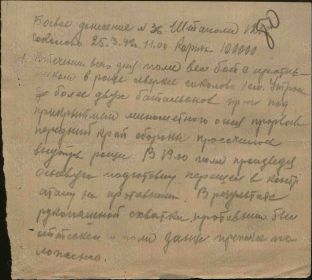 Боевое донесение № 36 Штаполк 
Соколово 25.3.42 11.00 Карта 100000
В течении всего дня полк вел бой с против-
ником в роще севернее Соколово 1 км.
до более двух батальонов пр-к под
прикрытием минометного огня прорвав
передний край обороны просочился
внутрь рощи. В 19.00 полк произведя
огневую подготовку перешел в контр
атаку на противника В результате
рукопашной схватки противник был
полк занял прежнее по-
ложение.